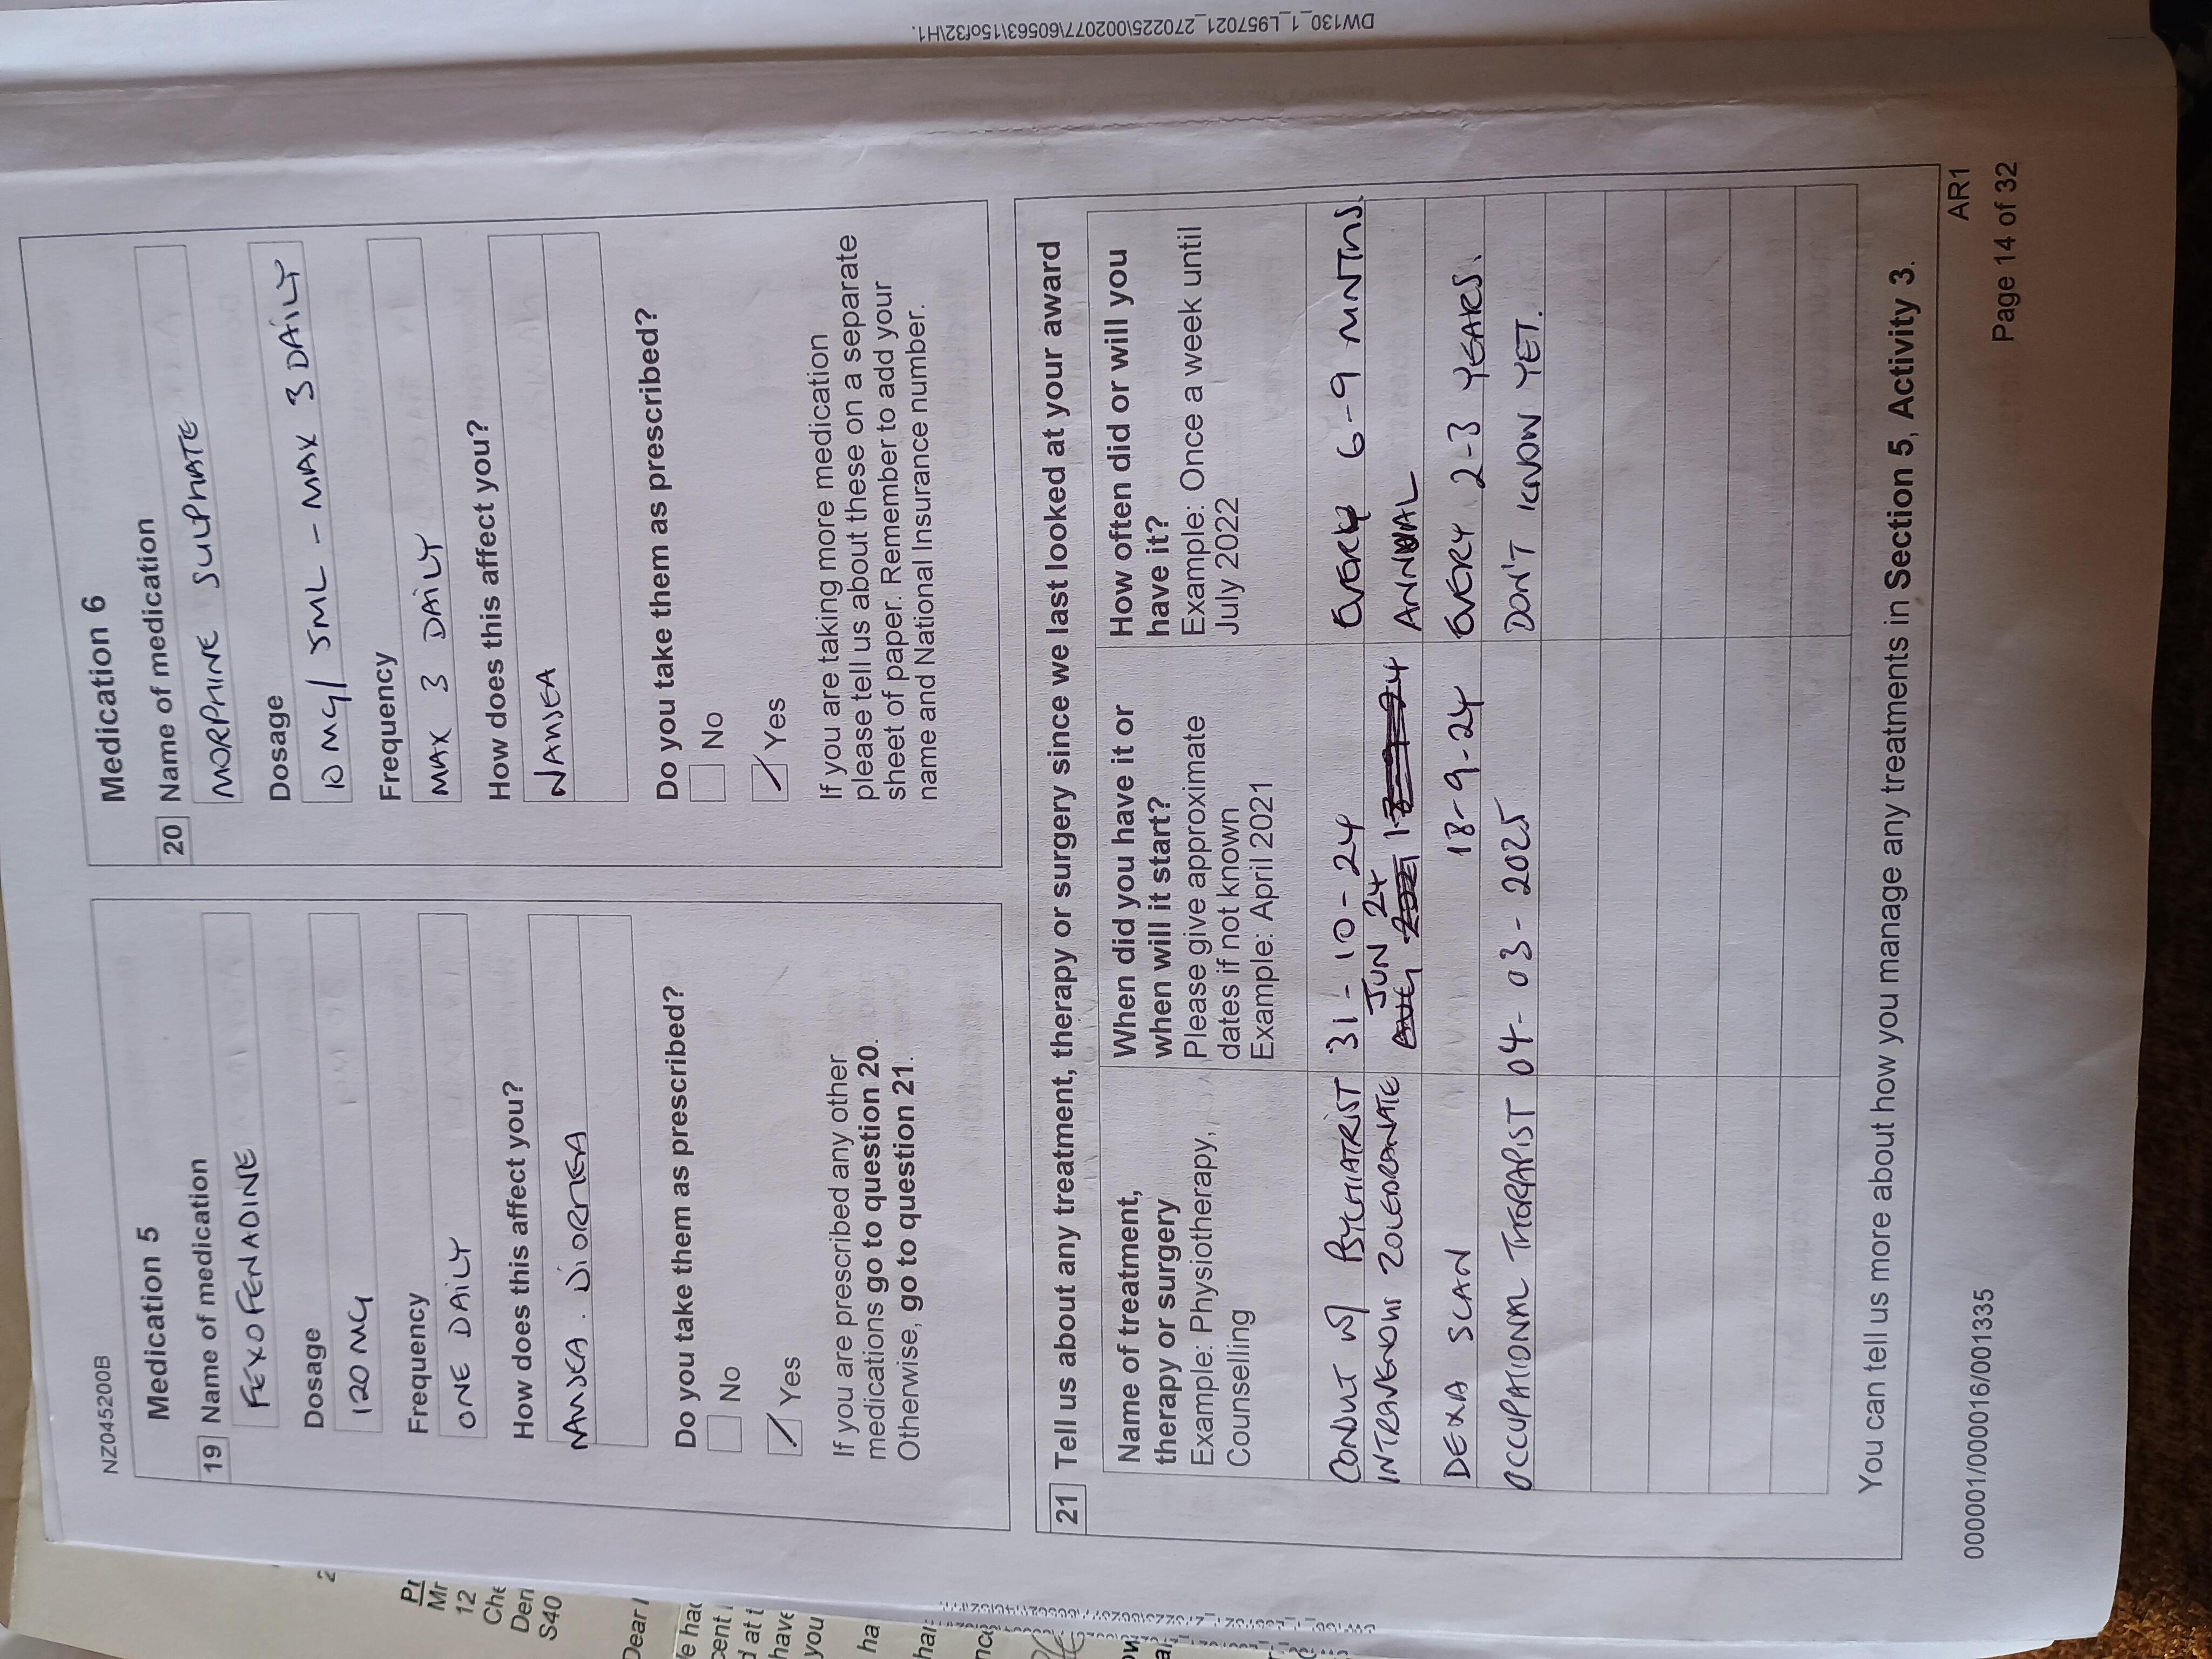 NZ045200B
Medication 5
19 Name of medication
FEXOFENADINE
Dosage
120 MG
Frequency
ONE DAILY
How does this affect you?
NAUSEA . DIORRHEA
Do you take them as prescribed?
No
Yes
If you are prescribed any other
medications go to question 20.
Otherwise, go to question 21.
Medication 6
20 Name of medication
MORPHINE SULPHATE
Dosage
10 MG/ 5ML - MAX 3 DAILY
Frequency
MAX 3 DAILY
How does this affect you?
NAUSEA
Do you take them as prescribed?
No
Yes
If you are taking more medication
please tell us about these on a separate
sheet of paper. Remember to add your
name and National Insurance number.
21 Tell us about any treatment, therapy or surgery since we last looked at your award
Name of treatment,
therapy or surgery
Example: Physiotherapy,
Counselling
When did you have it or
when will it start?
Please give approximate
dates if not known
Example: April 2021
How often did or will you
have it?
Example: Once a week until
July 2022
CONSULT W/ PSYCHIATRIST 31-10-24 EVERY 6-9 MNTHS.
INTRAVENOUS ZOLEDRONATE JUN 24 ANNUAL
DEXA SCAN 18-9-24 EVERY 2-3 YEARS.
OCCUPATIONAL THERAPIST 04-03-2025 DON'T KNOW YET.
You can tell us more about how you manage any treatments in Section 5, Activity 3.
000001/000016/001335
AR1
Page 14 of 32
DW130_1_L957021_270225\002077\60563\15of32\H1.
Mr
12
Che
Den
S40
Dear